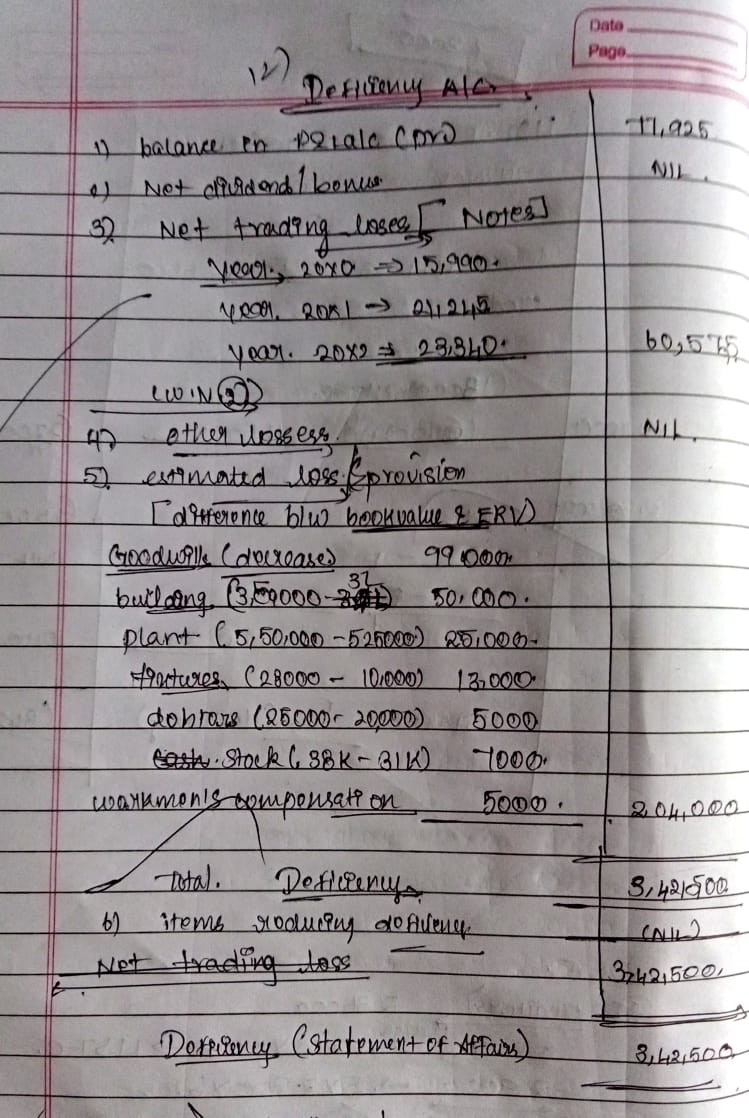 Date
Page
12)
Deficiency A/C
1) balance in P&L a/c (Dr) 77,925
2) Net dividend / bonus NIL.
3) Net trading loses [Notes]
Year. 20X0 => 15,990.
Year. 20X1 → 21,245
Year. 20X2 => 23,340. 60,575
(W.N (2))
4) other lossess. NIL.
5) estimated loss & provision
[difference b/w bookvalue & ERV)
Goodwill (decrease) 99000
building (3, 9000 - 50,000.
plant (5,50,000 - 525000) 25,000.
(28000 - 10,000) 13,000.
debtars (25000 - 20,000) 5000
cash. Stock (38K - 31K) 7000.
warkmen's compensation 5000. 2,04,000
Total. Deficiency 3,42,500
6) items reducing deficiency (NIL)
Net trading loss 3,42,500.
Defficiency (Statement of Affairs) 3,42,500